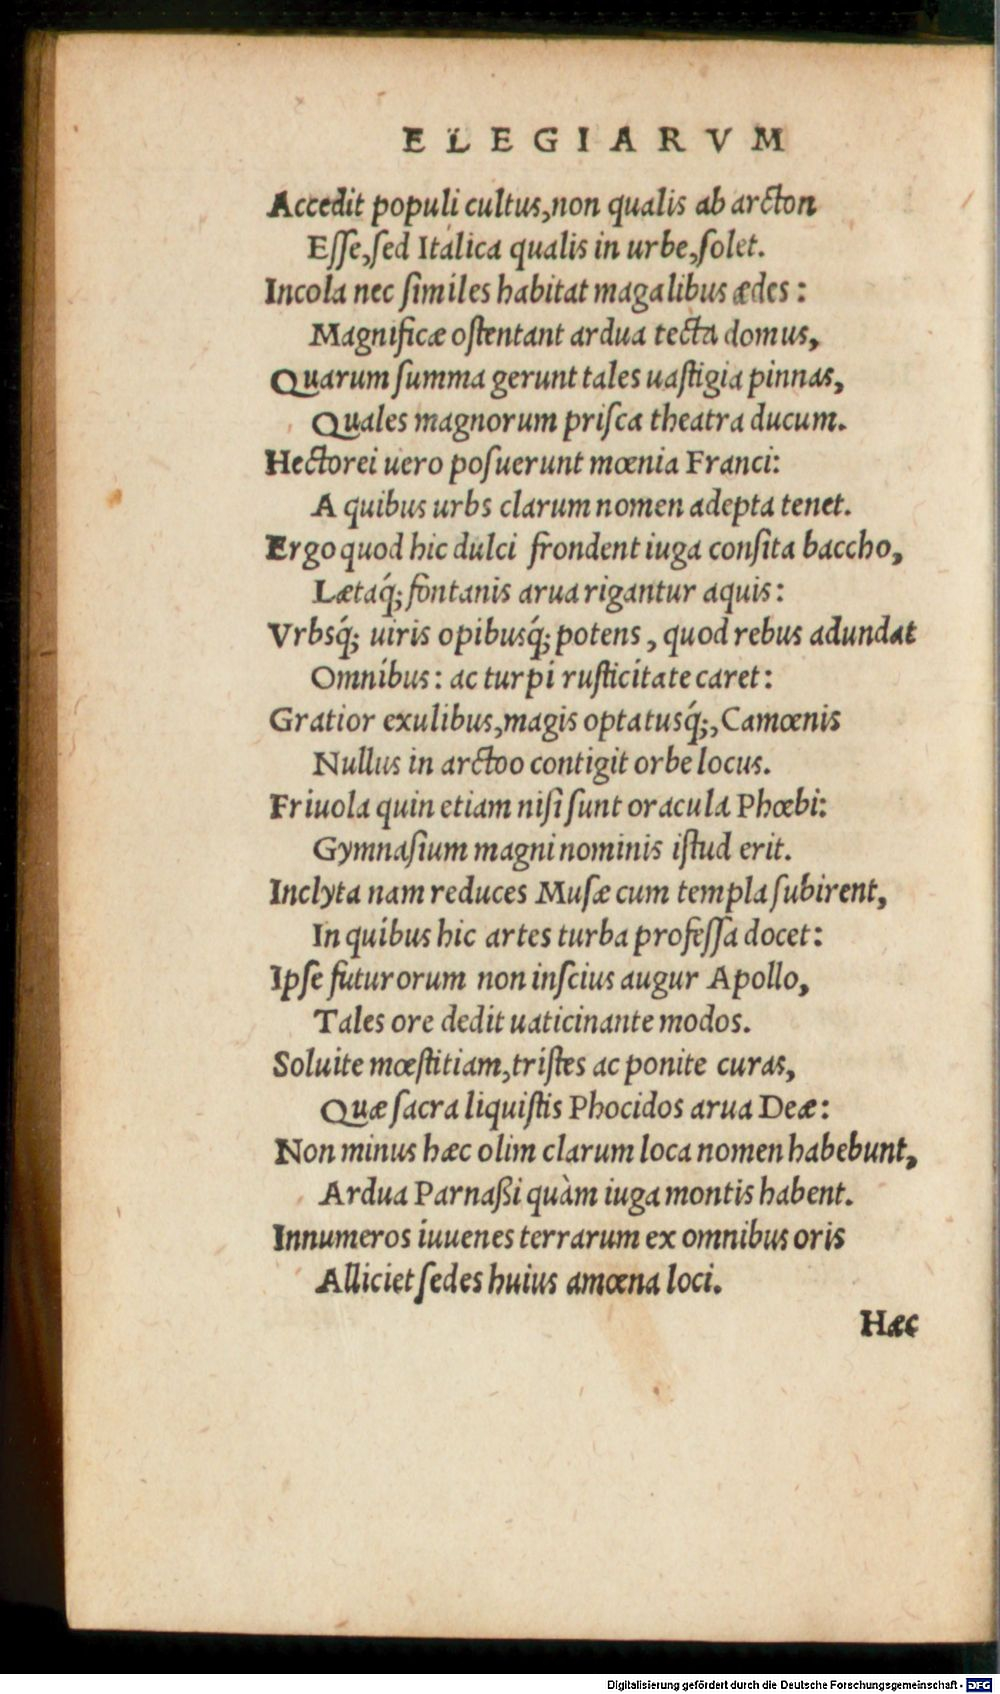 ELEGIARVM
Accedit populi cultus, non qualis ab arcton
Esse, sed Italica qualis in urbe, solet.
Incola nec similes habitat magalibus ædes:
Magnificæ ostentant ardua tecta domus,
Quarum summa gerunt tales uastigia pinnas,
Quales magnorum prisca theatra ducum.
Hectorei uero posuerunt mœnia Franci:
A quibus urbs clarum nomen adepta tenet.
Ergo quod hic dulci frondent iuga consita baccho,
Lætaq́; fontanis arua rigantur aquis:
Vrbsq́; uiris opibusq́; potens, quod rebus adundat
Omnibus: ac turpi rusticitate caret:
Gratior exulibus, magis optatusq́;, Camœnis
Nullus in arctoo contigit orbe locus.
Friuola quin etiam nisi sunt oracula Phœbi:
Gymnasium magni nominis istud erit.
Inclyta nam reduces Musæ cum templa subirent,
In quibus hic artes turba professa docet:
Ipse futurorum non inscius augur Apollo,
Tales ore dedit uaticinante modos.
Soluite mœstitiam, tristes ac ponite curas,
Quæ sacra liquistis Phocidos arua Deæ:
Non minus hæc olim clarum loca nomen habebunt,
Ardua Parnaßi quàm iuga montis habent.
Innumeros iuuenes terrarum ex omnibus oris
Alliciet sedes huius amœna loci.
Hæc
Digitalisierung gefördert durch die Deutsche Forschungsgemeinschaft - DFG